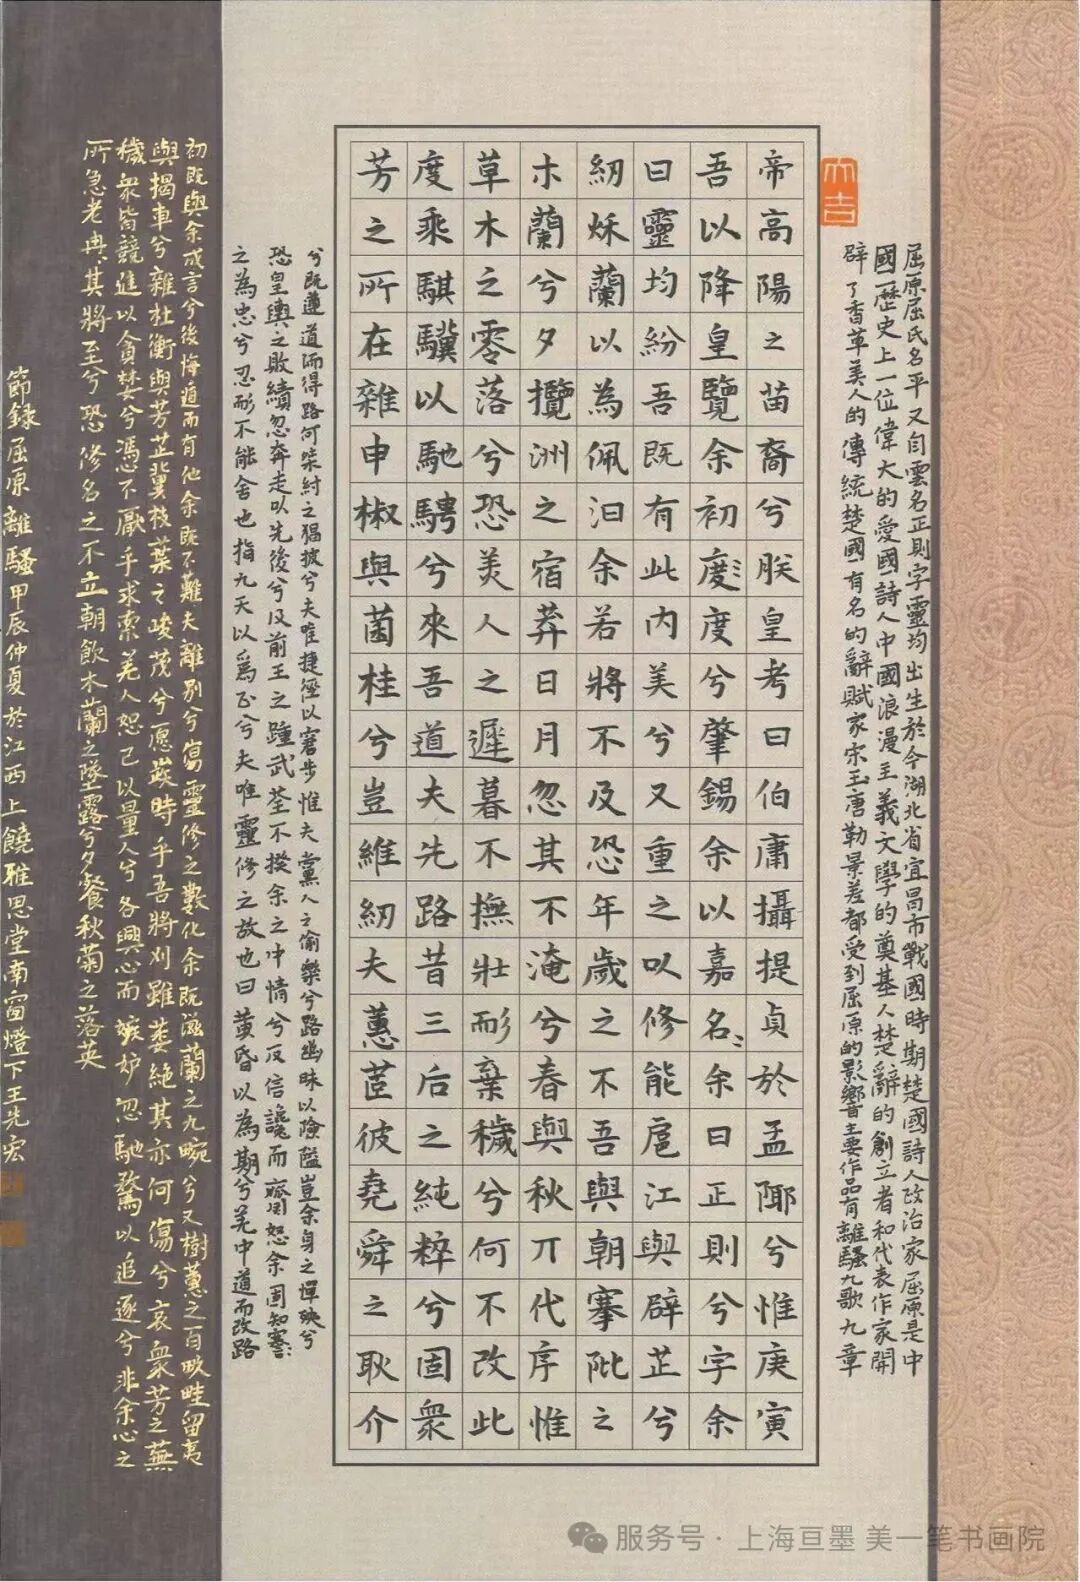 大吉
屈原屈氏名平又自雲名正則字靈均出生於今湖北省宜昌市戰國時期楚國詩人政治家屈原是中
國歷史上一位偉大的愛國詩人中國浪漫主義文學的奠基人楚辭的創立者和代表作家開
辟了香草美人的傳統楚國有名的辭賦家宋玉唐勒景差都受到屈原的影響主要作品有離騷九歌九章
帝高陽之苗裔兮朕皇考曰伯庸攝提貞於孟陬兮惟庚寅
吾以降皇覽余初度〻度兮肇錫余以嘉名〻余曰正則兮字余
曰靈均紛吾既有此內美兮又重之以修能扈江與辟芷兮
紉秌蘭以為佩汩余若將不及恐年歲之不吾與朝搴阰之
木蘭兮夕攬洲之宿莽日月忽其不淹兮春與秋丌代序惟
草木之零落兮恐美人之遲暮不撫壯而棄穢兮何不改此
度乘騏驥以馳騁兮來吾道夫先路昔三后之純粹兮固眾
芳之所在雜申椒與菌桂兮豈維紉夫蕙茝彼堯舜之耿介
兮既遵道而得路何桀紂之猖披兮夫唯捷徑以窘步惟夫黨人之偷樂兮路幽昧以險隘豈余身之憚殃兮
恐皇輿之敗績忽奔走以先後兮及前王之踵武荃不揆余之中情兮反信讒而齌怒余固知謇〻
之為忠兮忍而不能舍也指九天以為正兮夫唯靈修之故也曰黃昏以為期兮羌中道而改路
初既與余成言兮後悔遁而有他余既不難夫離別兮傷靈修之數化余既滋蘭之九畹兮又樹蕙之百畝畦留夷
與揭車兮雜杜衡與芳芷冀枝葉之峻茂兮愿竢時乎吾將刈雖萎絕其亦何傷兮哀眾芳之蕪
穢眾皆競進以貪婪兮憑不厭乎求索羌人恕己以量人兮各興心而嫉妒忽馳騖以追逐兮非余心之
所急老冉〻其將至兮恐修名之不立朝飲木蘭之墜露兮夕餐秋菊之落英
節錄屈原離騷甲辰仲夏於江西上饒雅思堂南窗燈下王先宏
服务号 · 上海亘墨 美一笔书画院